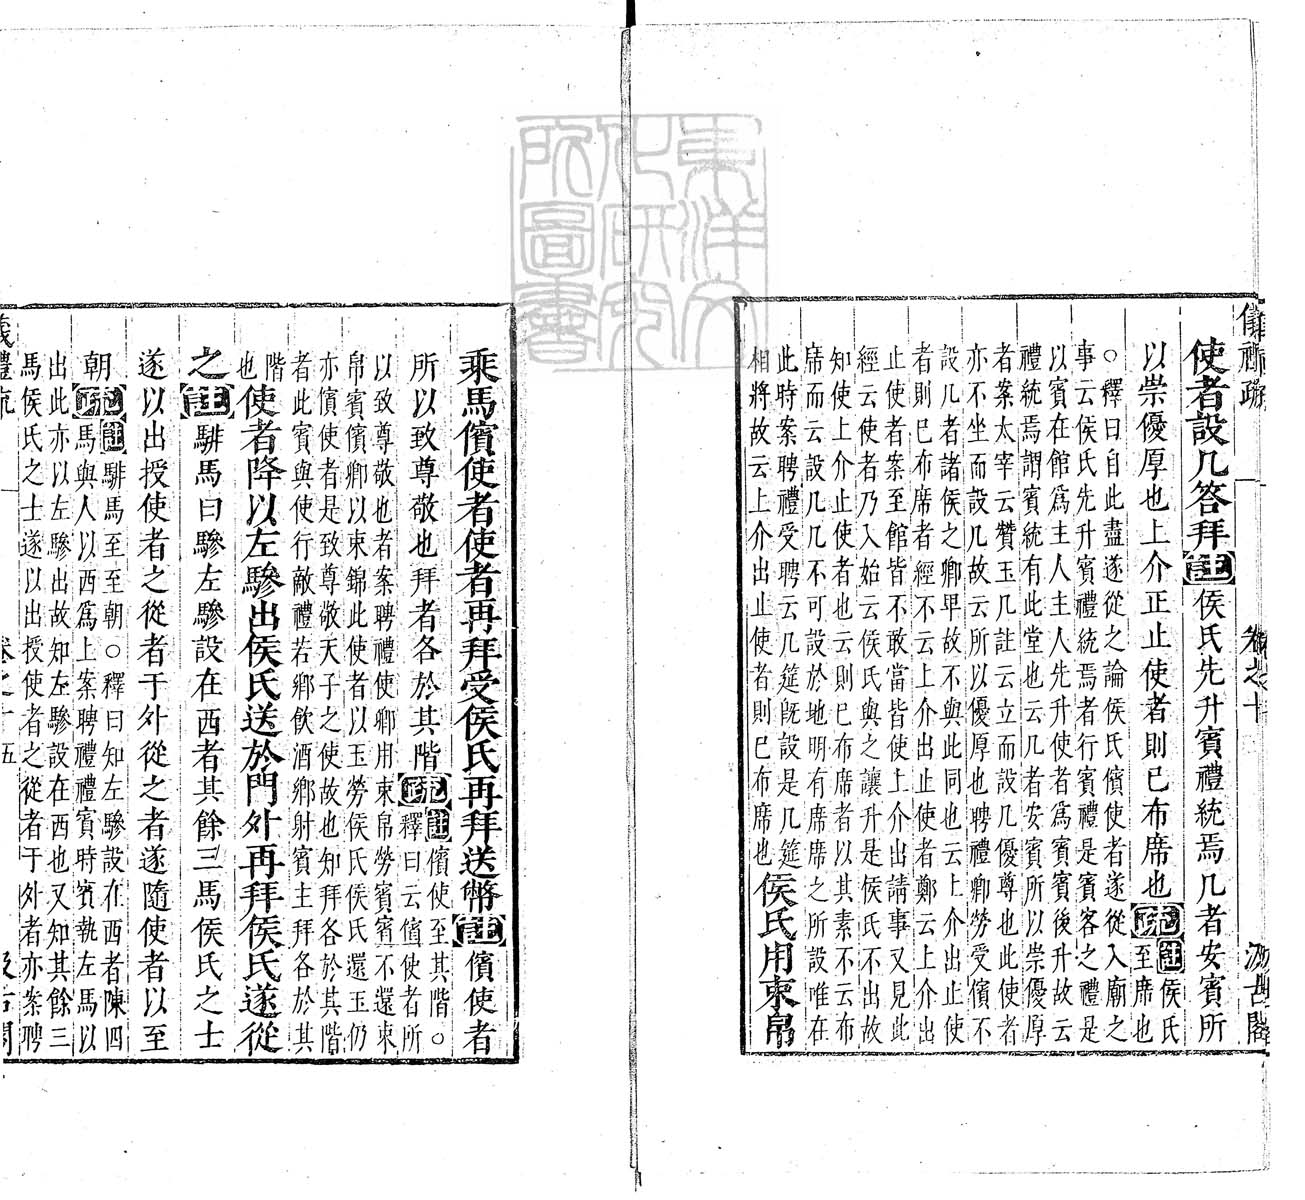 儀禮疏 卷之十 汲古閣
使者設几答拜註侯氏先升賓禮統焉几者安賓所
以崇優厚也上介正止使者則已布席也疏註侯氏
至席也
○釋曰自此盡遂從之論侯氏儐使者遂從入廟之
事云侯氏先升賓禮統焉者行賓禮是賓客之禮是
以賓在館爲主人主人先升使者爲賓賓後升故云
禮統焉謂賓統有此堂也云几者安賓所以崇優厚
者案太宰云贊玉几註云立而設几優尊也此使者
亦不坐而設几故云所以優厚也聘禮卿勞受儐不
設几者諸侯之卿卑故不與此同也云上介出止使
者則已布席者經不云上介出止使者鄭云上介出
止使者案至館皆不敢當皆使上介出請事又見此
經云使者乃入始云侯氏與之讓升是侯氏不出故
知使上介止使者也云則已布席者以其素不云布
席而云設几几不可設於地明有席席之所設唯在
此時案聘禮受聘云几筵旣設是几筵
相將故云上介出止使者則已布席也侯氏用束帛
乘馬儐使者使者再拜受侯氏再拜送幣註儐使者
所以致尊敬也拜者各於其階疏註儐使至其階○
釋曰云儐使者所
以致尊敬也者案聘禮使卿用束帛勞賓賓不還束
帛賓儐卿以束錦此使者以玉勞侯氏侯氏還玉仍
亦儐使者是致尊敬天子之使故也知拜各於其階
者此賓與使行敵禮若鄉飲酒鄉射賓主拜各於其
階
也使者降以左驂出侯氏送於門外再拜侯氏遂從
之註騑馬曰驂左驂設在西者其餘三馬侯氏之士
遂以出授使者之從者于外從之者遂隨使者以至
朝疏註騑馬至至朝○釋曰知左驂設在西者陳四
馬與人以西爲上案聘禮禮賓時賓執左馬以
出此亦以左驂出故知左驂設在西也又知其餘三
馬侯氏之士遂以出授使者之從者于外者亦案聘
儀禮疏 卷之十五 汲古閣
東洋文化研究所圖書